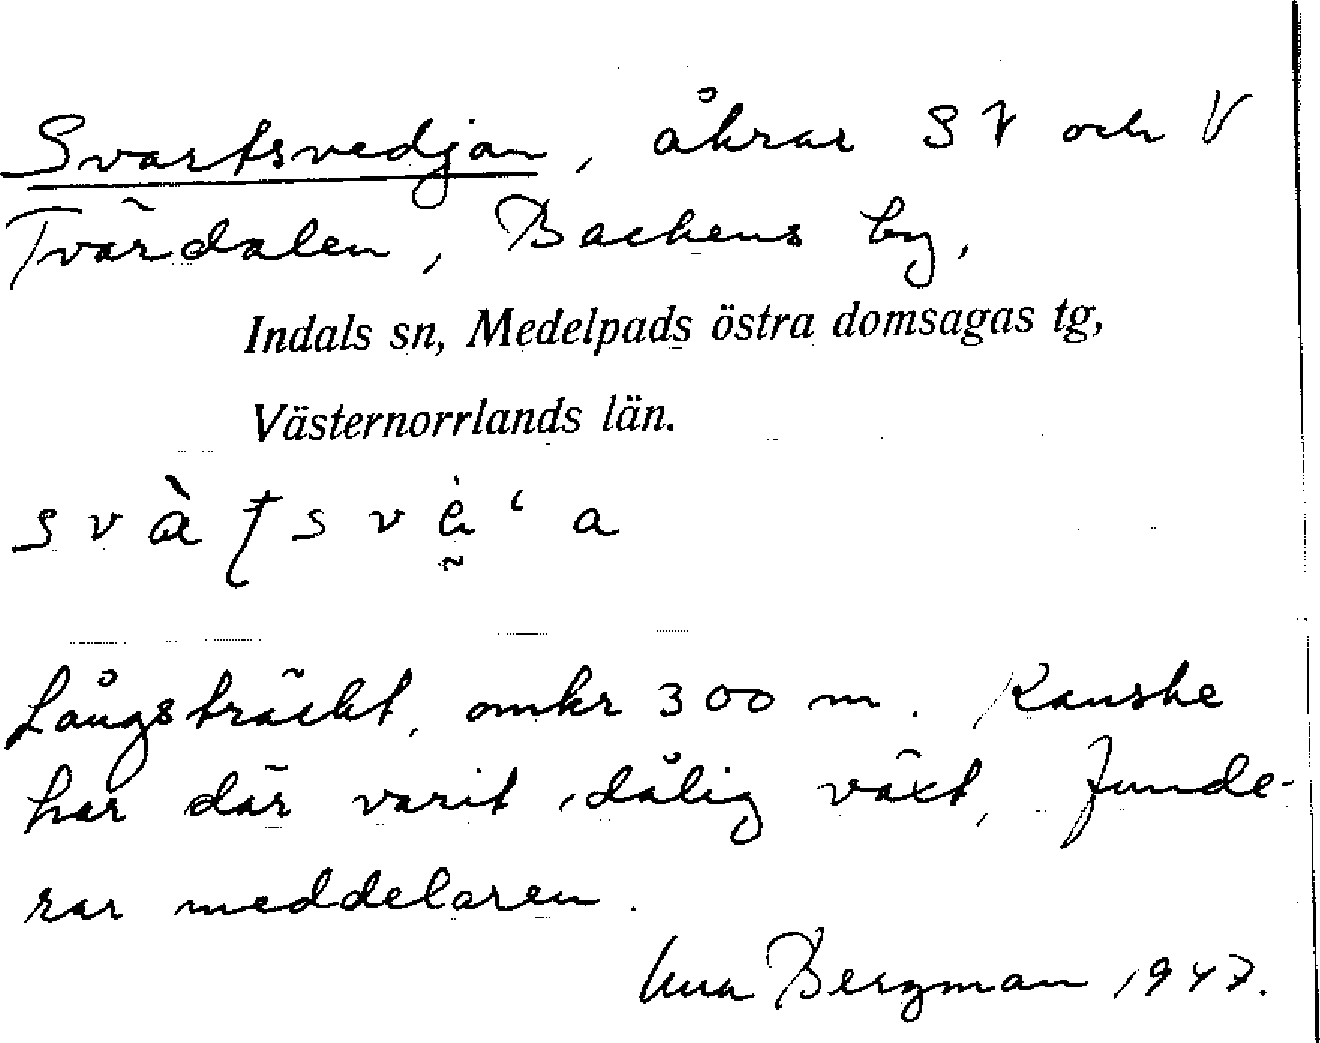 Svartsvedjan, åkrar SV och V
Tvärdalen, Backens by,
Indals sn, Medelpads östra domsagas tg,
Västernorrlands län.
Långsträckt, omkr 300 m. Kanske
har där varit dålig växt, funde-
rar meddelaren.
Bergman 1947.